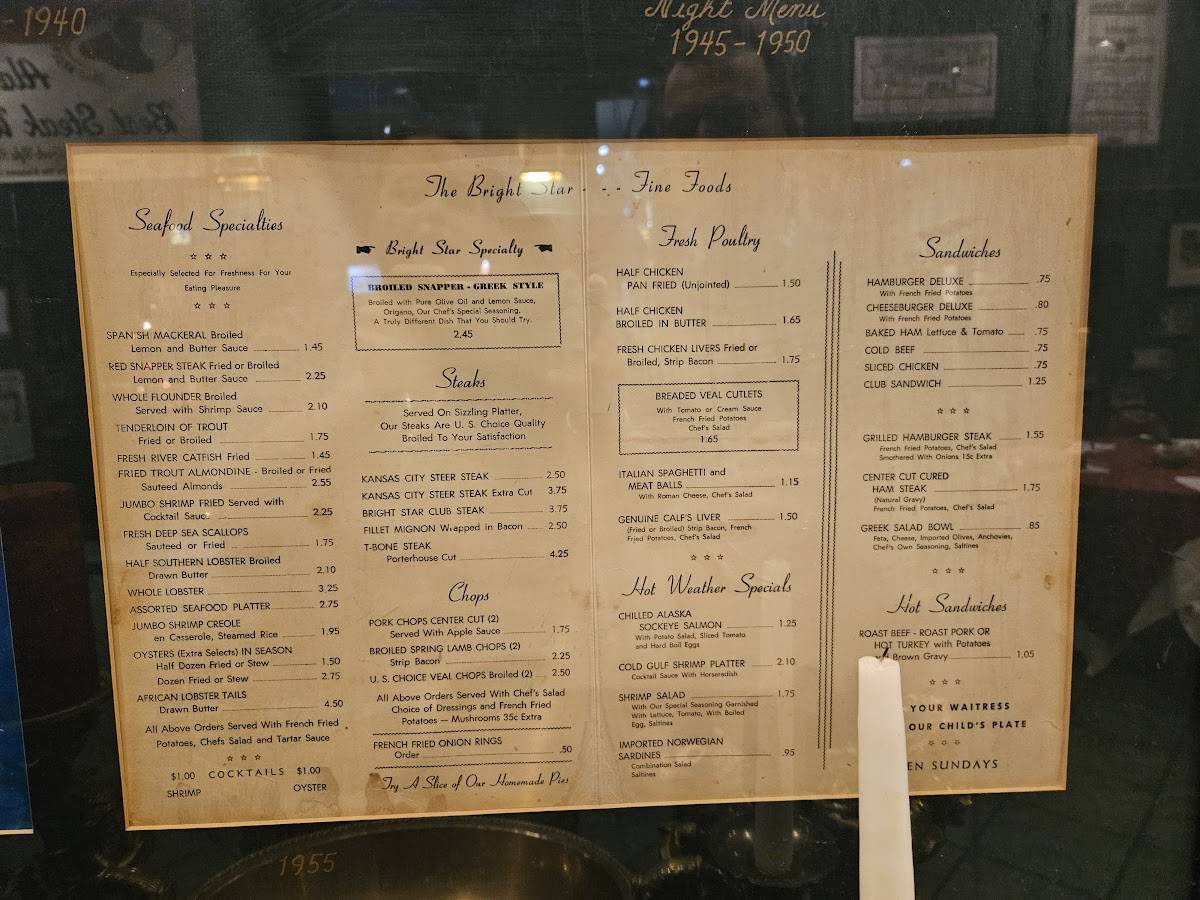 - 1940
Night Menu
1945 - 1950
The Bright Star - - - Fine Foods
Seafood Specialties
☆ ☆ ☆
Especially Selected For Freshness For Your
Eating Pleasure
☆ ☆ ☆
SPANISH MACKERAL Broiled
Lemon and Butter Sauce 1.45
RED SNAPPER STEAK Fried or Broiled
Lemon and Butter Sauce 2.25
WHOLE FLOUNDER Broiled
Served with Shrimp Sauce 2.10
TENDERLOIN OF TROUT
Fried or Broiled 1.75
FRESH RIVER CATFISH Fried 1.45
FRIED TROUT ALMONDINE - Broiled or Fried
Sauteed Almonds 2.55
JUMBO SHRIMP FRIED Served with
Cocktail Sauce 2.25
FRESH DEEP SEA SCALLOPS
Sauteed or Fried 1.75
HALF SOUTHERN LOBSTER Broiled
Drawn Butter 2.10
WHOLE LOBSTER 3.25
ASSORTED SEAFOOD PLATTER 2.75
JUMBO SHRIMP CREOLE
en Casserole, Steamed Rice 1.95
OYSTERS (Extra Selects) IN SEASON
Half Dozen Fried or Stew 1.50
Dozen Fried or Stew 2.75
AFRICAN LOBSTER TAILS
Drawn Butter 4.50
All Above Orders Served With French Fried
Potatoes, Chefs Salad and Tartar Sauce
☆ ☆ ☆
$1.00 COCKTAILS $1.00
SHRIMP OYSTER
Bright Star Specialty
BROILED SNAPPER - GREEK STYLE
Broiled with Pure Olive Oil and Lemon Sauce,
Origano, Our Chef's Special Seasoning.
A Truly Different Dish That You Should Try.
2.45
Steaks
Served On Sizzling Platter,
Our Steaks Are U. S. Choice Quality
Broiled To Your Satisfaction
KANSAS CITY STEER STEAK 2.50
KANSAS CITY STEER STEAK Extra Cut 3.75
BRIGHT STAR CLUB STEAK 3.75
FILLET MIGNON Wrapped in Bacon 2.50
T-BONE STEAK
Porterhouse Cut 4.25
Chops
PORK CHOPS CENTER CUT (2)
Served With Apple Sauce 1.75
BROILED SPRING LAMB CHOPS (2)
Strip Bacon 2.25
U. S. CHOICE VEAL CHOPS Broiled (2) 2.50
All Above Orders Served With Chef's Salad
Choice of Dressings and French Fried
Potatoes — Mushrooms 35c Extra
FRENCH FRIED ONION RINGS
Order .50
Try A Slice of Our Homemade Pies
Fresh Poultry
HALF CHICKEN
PAN FRIED (Unjointed) 1.50
HALF CHICKEN
BROILED IN BUTTER 1.65
FRESH CHICKEN LIVERS Fried or
Broiled, Strip Bacon 1.75
BREADED VEAL CUTLETS
With Tomato or Cream Sauce
French Fried Potatoes
Chef's Salad
1.65
ITALIAN SPAGHETTI and
MEAT BALLS 1.15
With Roman Cheese, Chef's Salad
GENUINE CALF'S LIVER 1.50
(Fried or Broiled) Strip Bacon, French
Fried Potatoes, Chef's Salad
☆ ☆ ☆
Hot Weather Specials
CHILLED ALASKA
SOCKEYE SALMON 1.25
With Potato Salad, Sliced Tomato
and Hard Boil Eggs
COLD GULF SHRIMP PLATTER 2.10
Cocktail Sauce With Horseradish
SHRIMP SALAD 1.75
With Our Special Seasoning Garnished
With Lettuce, Tomato, With Boiled
Egg, Saltines
IMPORTED NORWEGIAN
SARDINES .95
Combination Salad
Saltines
Sandwiches
HAMBURGER DELUXE .75
With French Fried Potatoes
CHEESEBURGER DELUXE .80
With French Fried Potatoes
BAKED HAM Lettuce & Tomato .75
COLD BEEF .75
SLICED CHICKEN .75
CLUB SANDWICH 1.25
☆ ☆ ☆
GRILLED HAMBURGER STEAK 1.55
French Fried Potatoes, Chef's Salad
Smothered With Onions 15c Extra
CENTER CUT CURED
HAM STEAK 1.75
(Natural Gravy)
French Fried Potatoes, Chef's Salad
GREEK SALAD BOWL .85
Feta, Cheese, Imported Olives, Anchovies,
Chef's Own Seasoning, Saltines
☆ ☆ ☆
Hot Sandwiches
ROAST BEEF - ROAST PORK OR
HOT TURKEY with Potatoes
Brown Gravy 1.05
☆ ☆ ☆
YOUR WAITRESS
OUR CHILD'S PLATE
☆ ☆ ☆
EN SUNDAYS
1955